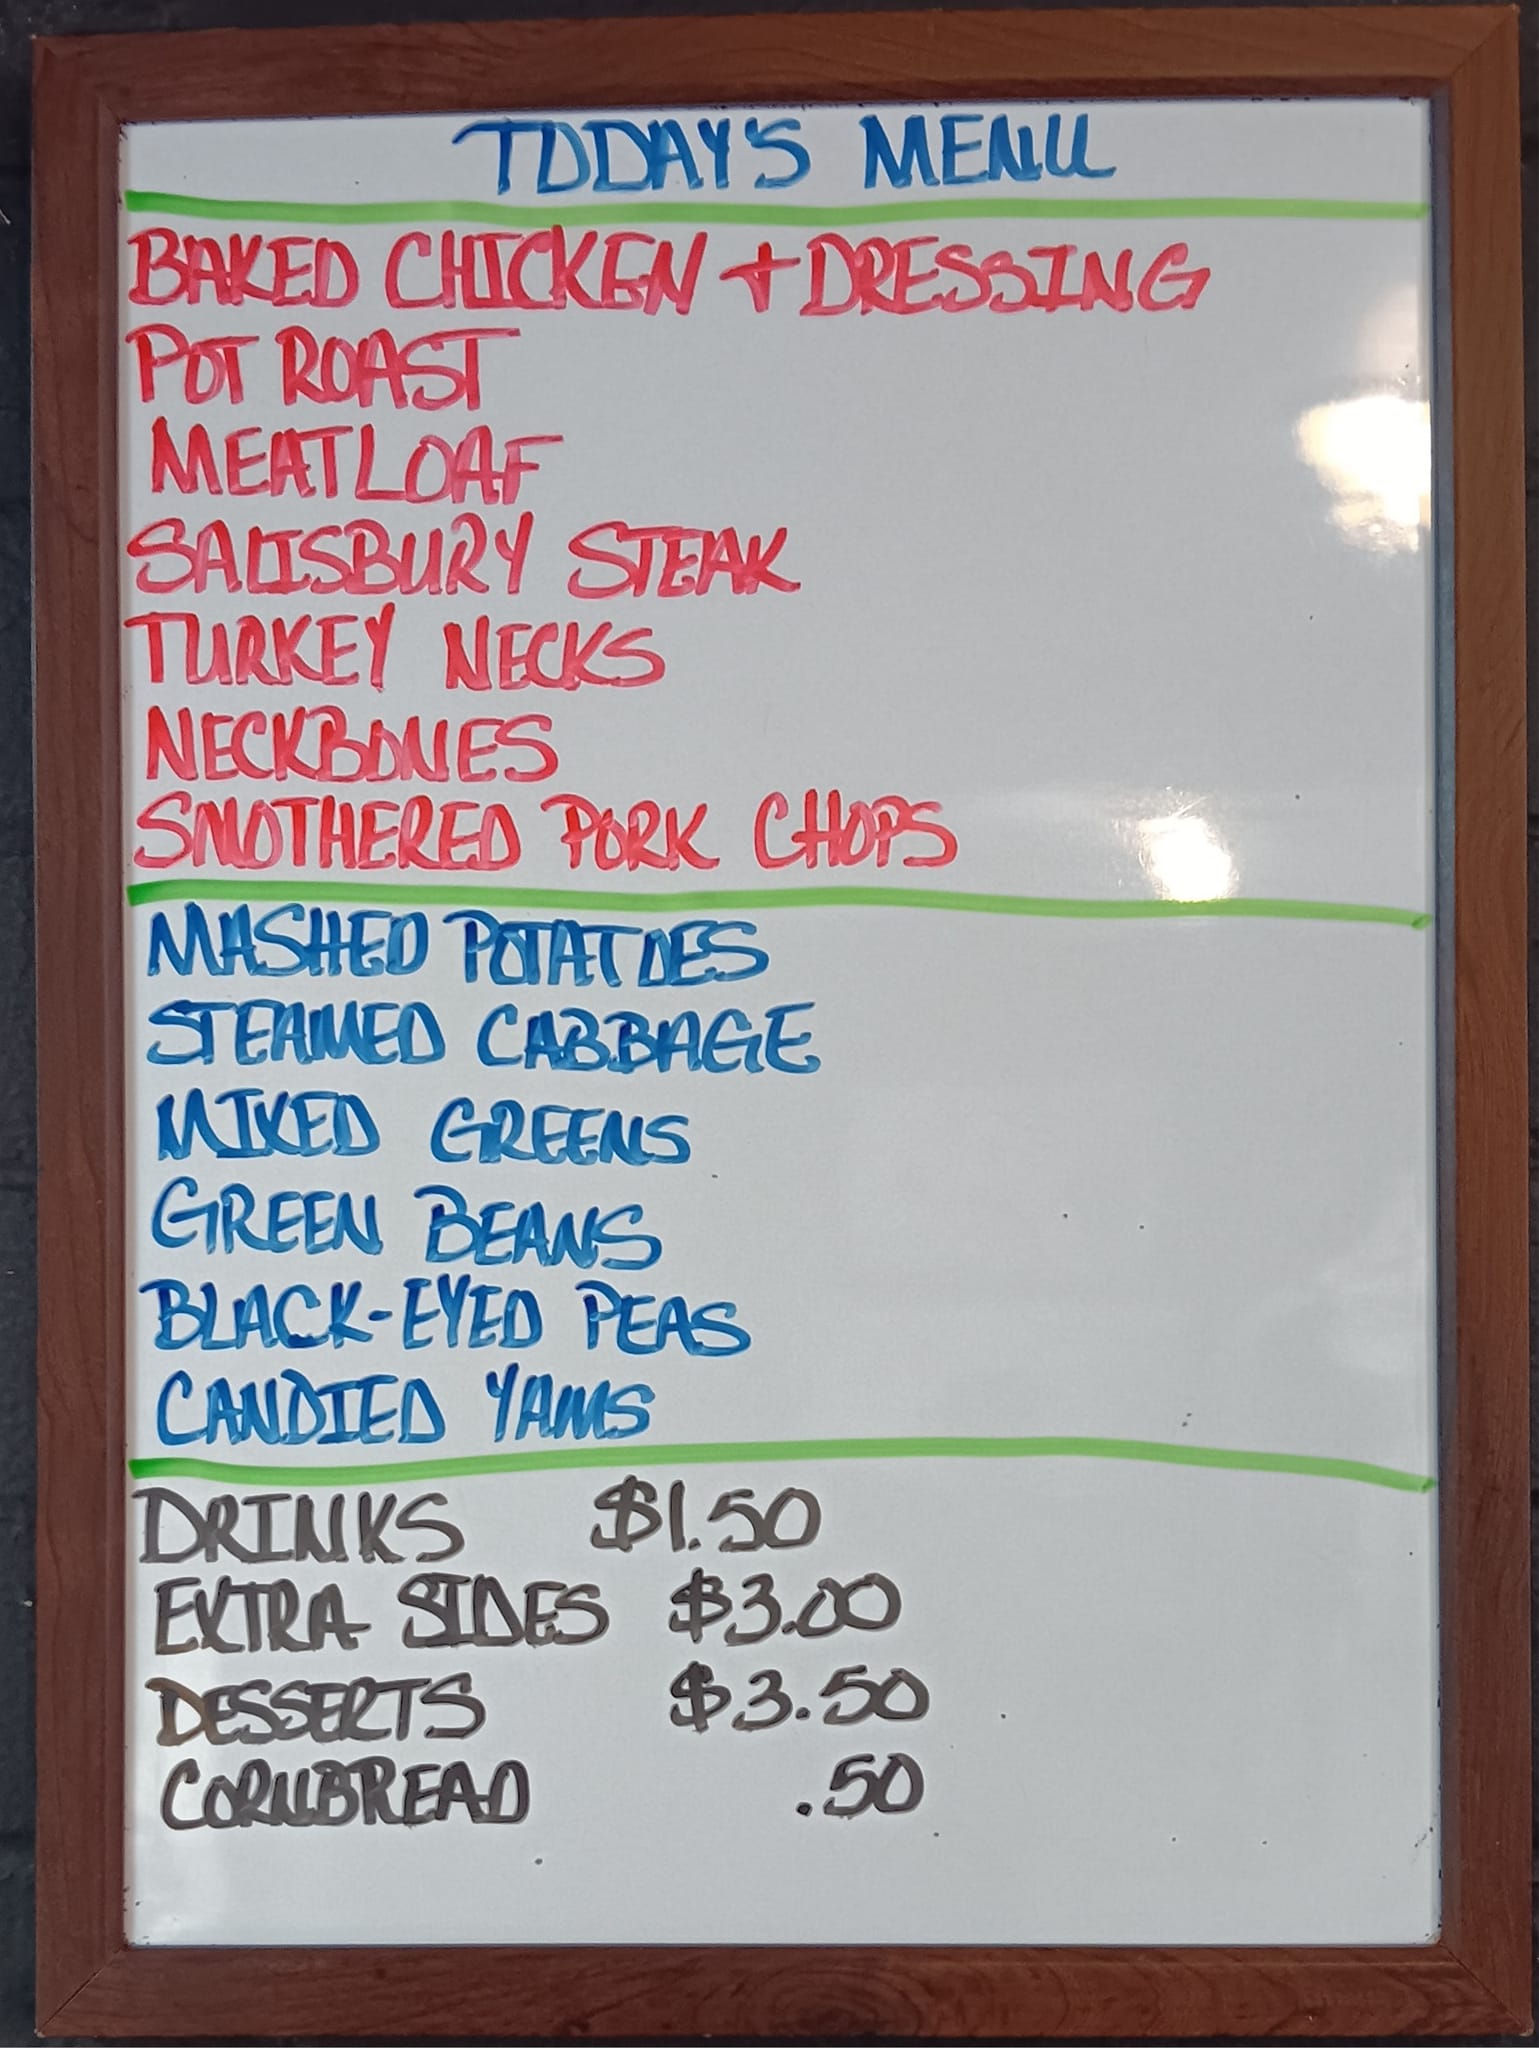 TODAY'S MENU
BAKED CHICKEN + DRESSING
POT ROAST
MEATLOAF
SALISBURY STEAK
TURKEY NECKS
NECKBONES
SMOTHERED PORK CHOPS
MASHED POTATOES
STEAMED CABBAGE
MIXED GREENS
GREEN BEANS
BLACK-EYED PEAS
CANDIED YAMS
DRINKS $1.50
EXTRA SIDES $3.00
DESSERTS $3.50
CORNBREAD .50